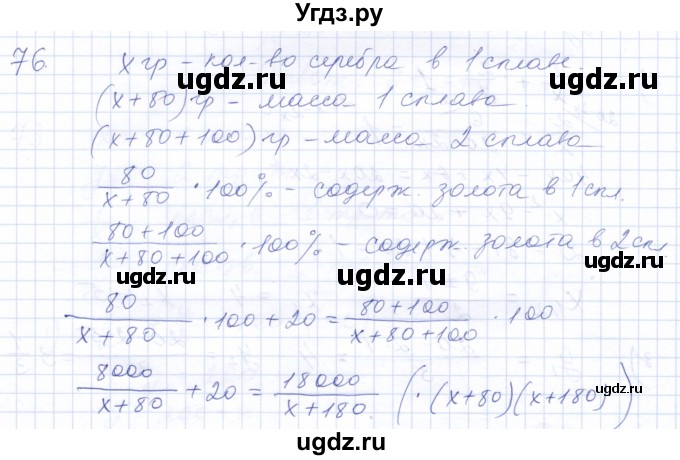 Угдз.ру
76. x гр – кол-во серебра в 1 сплаве.
ugdz.ru ugdz.ru
(x+80) гр – масса 1 сплава.
(x+80+100) гр – масса 2 сплава
ugdz.ru ugdz.ru
80/(x+80) · 100% – содерж. золота в 1 спл.
(80+100)/(x+80+100) · 100% – содерж. золота в 2 спл
ugdz.ru ugdz.ru
80/(x+80) · 100 + 20 = (80+100)/(x+80+100) · 100
ugdz.ru ugdz.ru
8000/(x+80) + 20 = 18000/(x+180) (·(x+80)(x+180))
ugdz.ru ugdz.ru